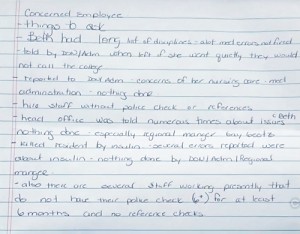 Concerned Employee
- things to ask
- Beth had long list of disciplines - alot med errors, not fired
- told by DOC/Adm when left if she went quietly they would
not call the college
- reported to DOC/Adm - concerns of her nursing care - med
administration - nothing done
- hire staff without police check or references
- head office was told numerous times about issues
c Beth
nothing done - especially regional manger
- killed resident by insulin - several errors reported were
about insulin - nothing done by DOC/Adm/Regional
manger
- also there are several staff working presently that
do not have their police check (6+) for at least
6 months and no reference checks